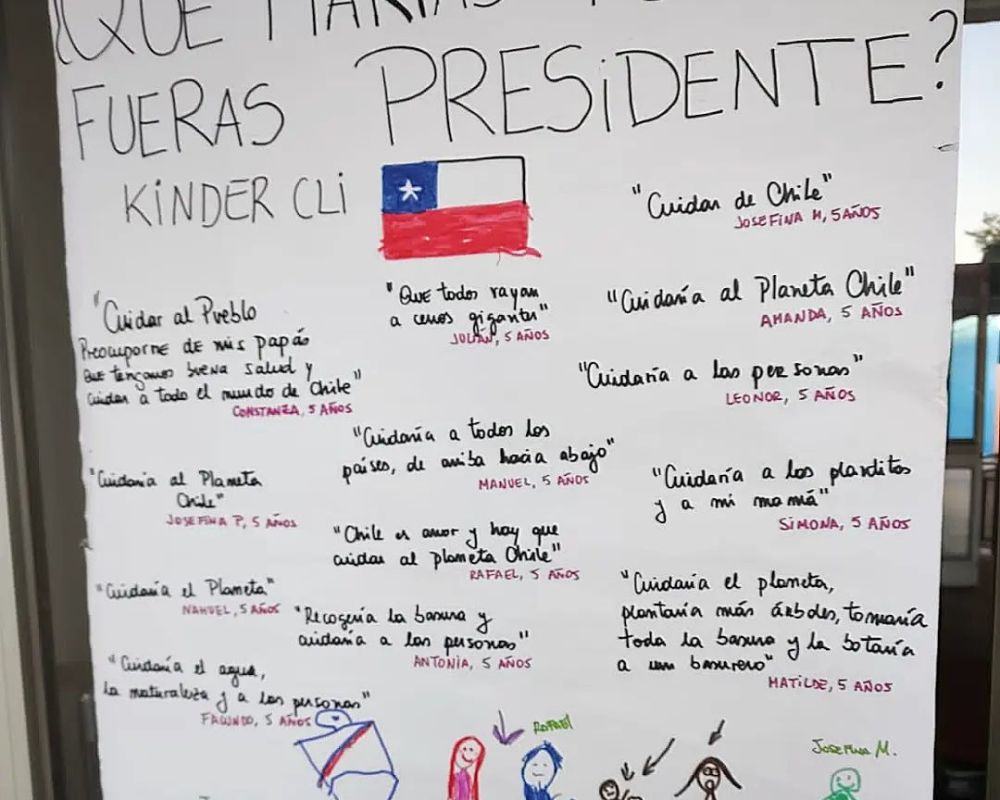 ¿QUÉ HARÍAS
FUERAS PRESIDENTE?
KINDER CLI
"Cuidar de Chile"
JOSEFINA M, 5 AÑOS
"Cuidar al Pueblo
Preocuparme de mis papás
que tengamos buena salud y
cuidar a todo el mundo de Chile"
CONSTANZA, 5 AÑOS
"Que todos vayan
a cerros gigantes"
JULIÁN, 5 AÑOS
"Cuidaría al Planeta Chile"
AMANDA, 5 AÑOS
"Cuidaría a las personas"
LEONOR, 5 AÑOS
"Cuidaría a todos los
países, de arriba hacia abajo"
MANUEL, 5 AÑOS
"Cuidaría al Planeta
Chile"
JOSEFINA P, 5 AÑOS
"Cuidaría a las plantitas
y a mi mamá"
SIMONA, 5 AÑOS
"Chile es amor y hay que
cuidar al planeta Chile"
RAFAEL, 5 AÑOS
"Cuidaría el Planeta"
NAHUEL, 5 AÑOS
"Recogería la basura y
cuidaría a las personas"
ANTONIA, 5 AÑOS
"Cuidaría el planeta,
plantaría más árboles, tomaría
toda la basura y la botaría
a un basurero"
MATILDE, 5 AÑOS
"Cuidaría el agua,
la naturaleza y a las personas"
FACUNDO, 5 AÑOS
RAFAEL
JOSEFINA M.